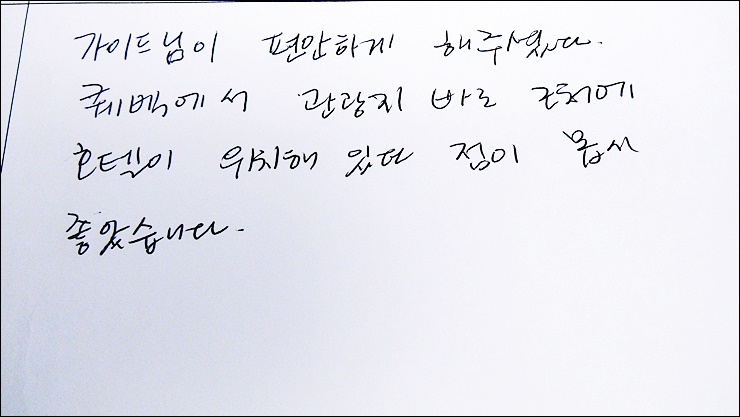 가이드님이 편안하게 해주셨다.
퀘벡에서 관광지 바로 근처에
호텔이 위치해 있다 점이 몹시
좋았습니다.